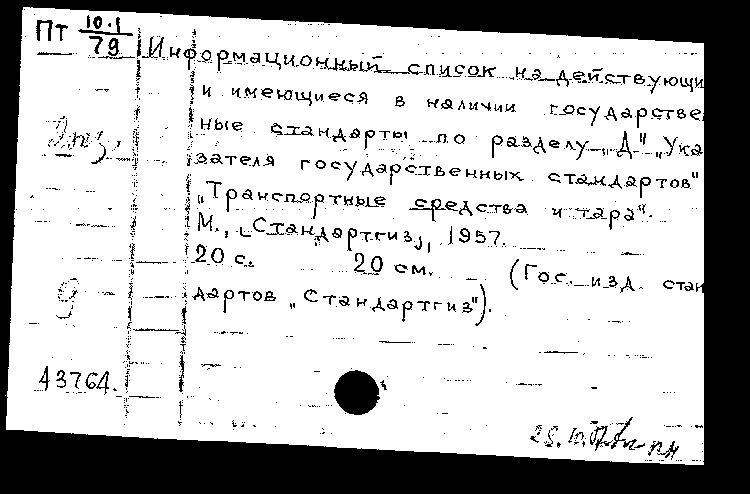 Пт 10.1
79
Информационный список на действующи
и имеющиеся в наличии государстве
Экз.
ные стандарты по разделу „Д" „Ука
зателя государственных стандартов"
„Транспортные средства и тара".
М., [„Стандартгиз"], 1957.
20 с. 20 см. (Гос. изд. стан
9
дартов „Стандартгиз").
43764.
28.10.57